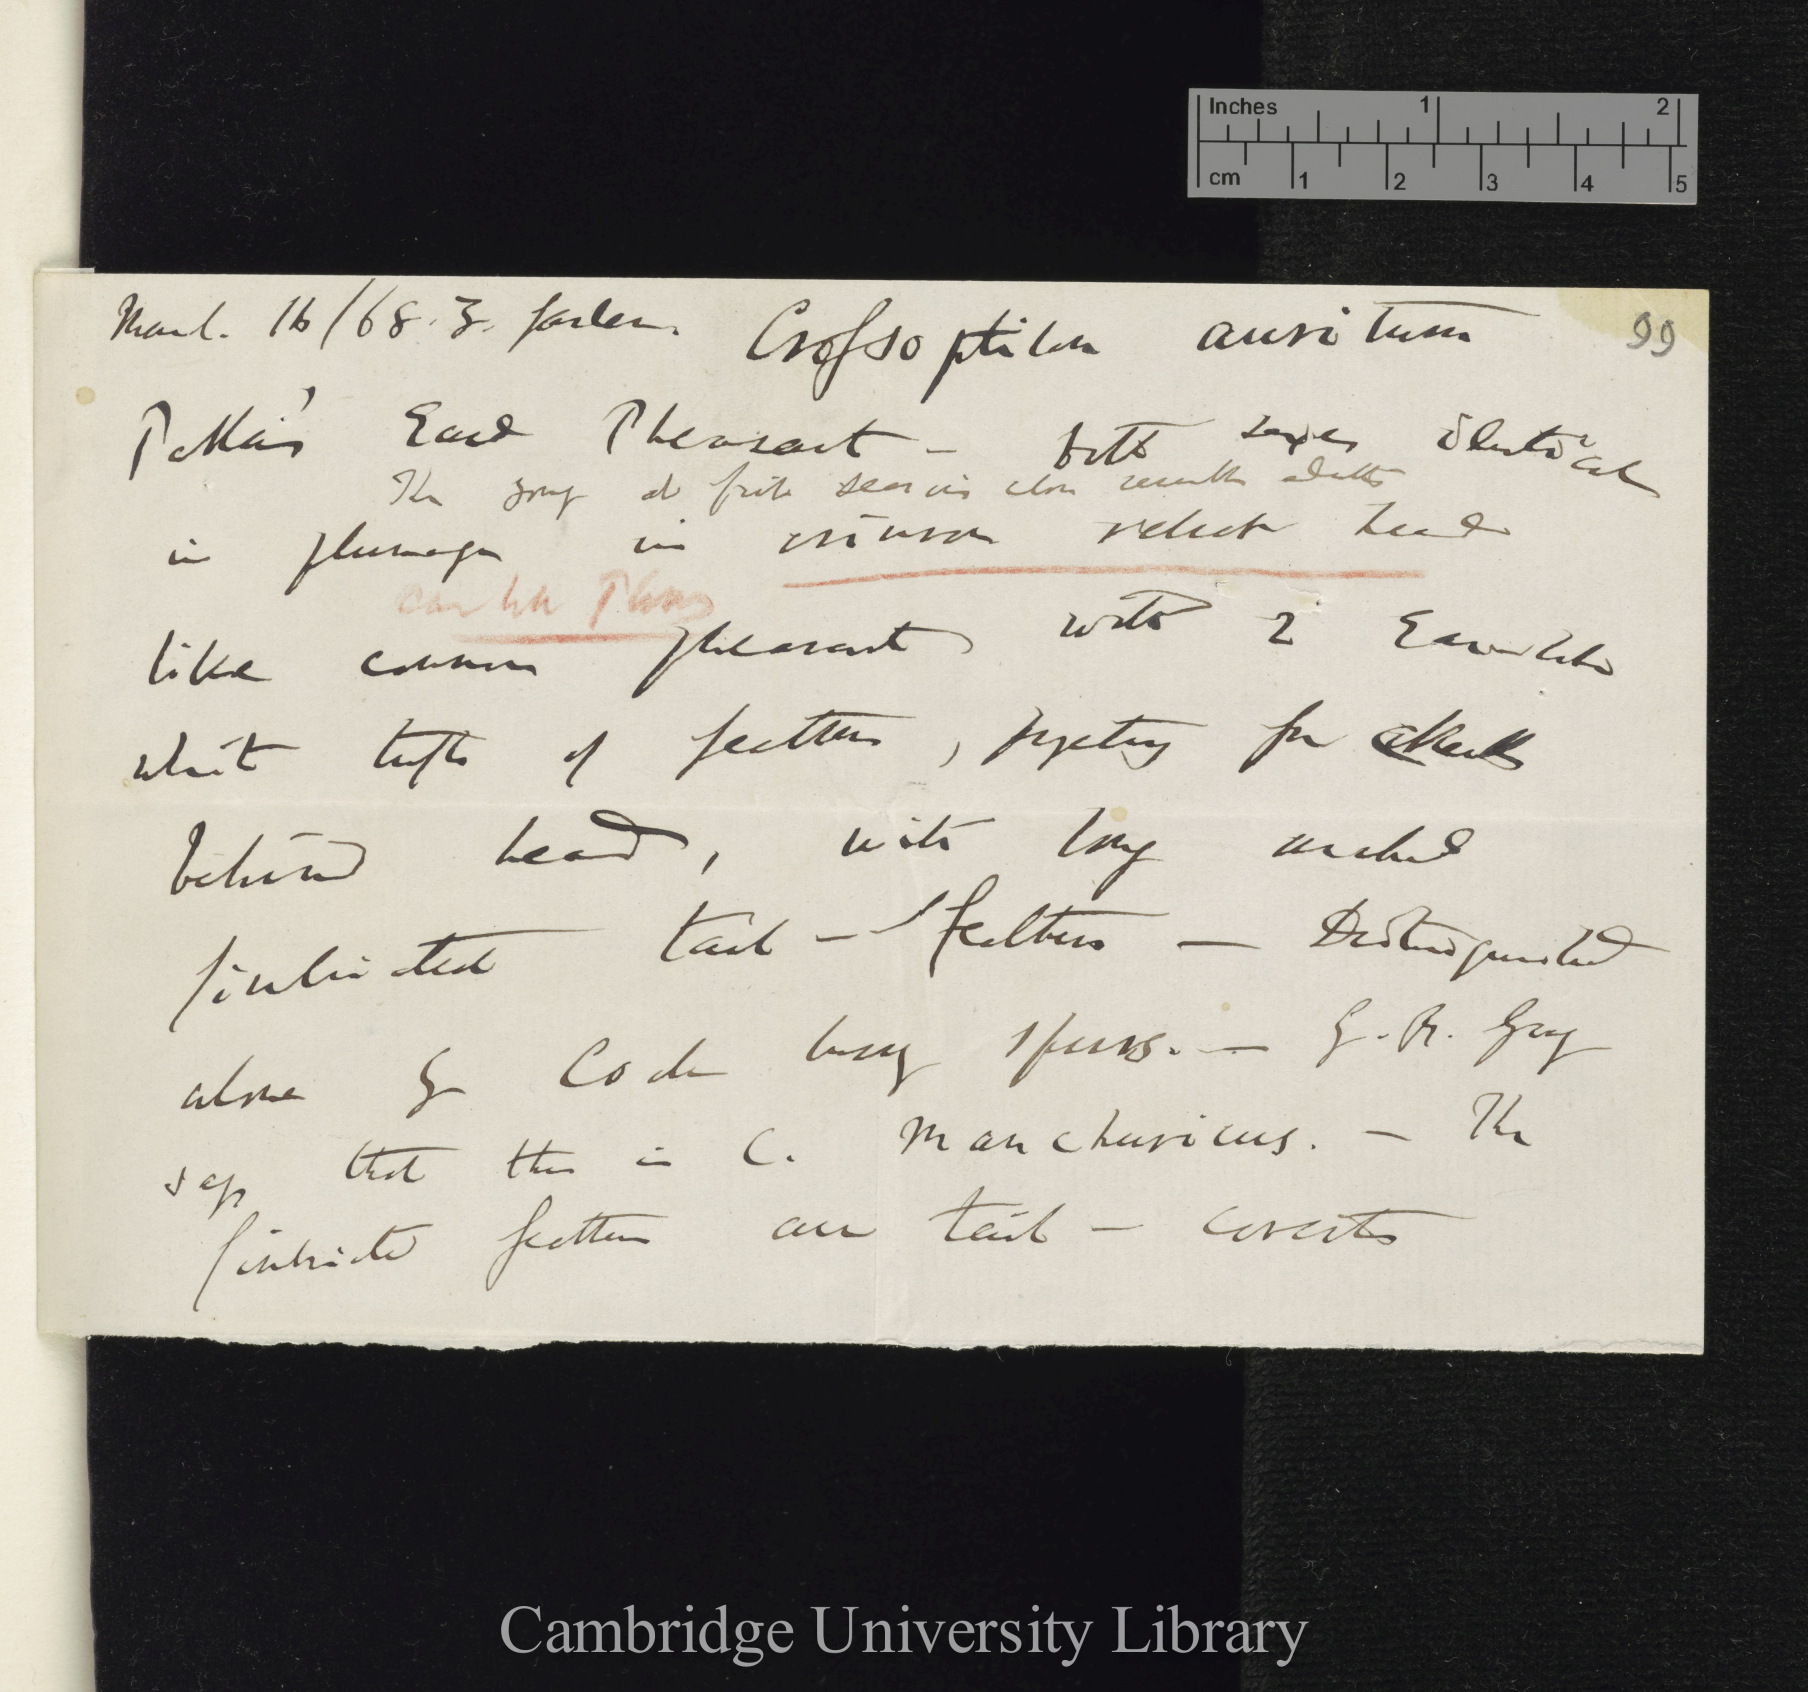 Inches 1 2
cm 1 2 3 4 5
March. 16/68. Z. Garden. Crossoptilon auritum 99
Pallas' Eared Pheasant — both sexes identical
The young at first season also resemble adults
in plumage in crimson velvet head
like common pheasant with 2 Ear-like
white tufts of feathers, projecting from
behind head, with long arched
fimbriated tail-feathers — Distinguished
alone by Cock having spurs. — G. R. Gray
says that this is C. Manchuricus. — The
fimbriated feathers are tail-coverts
Cambridge University Library